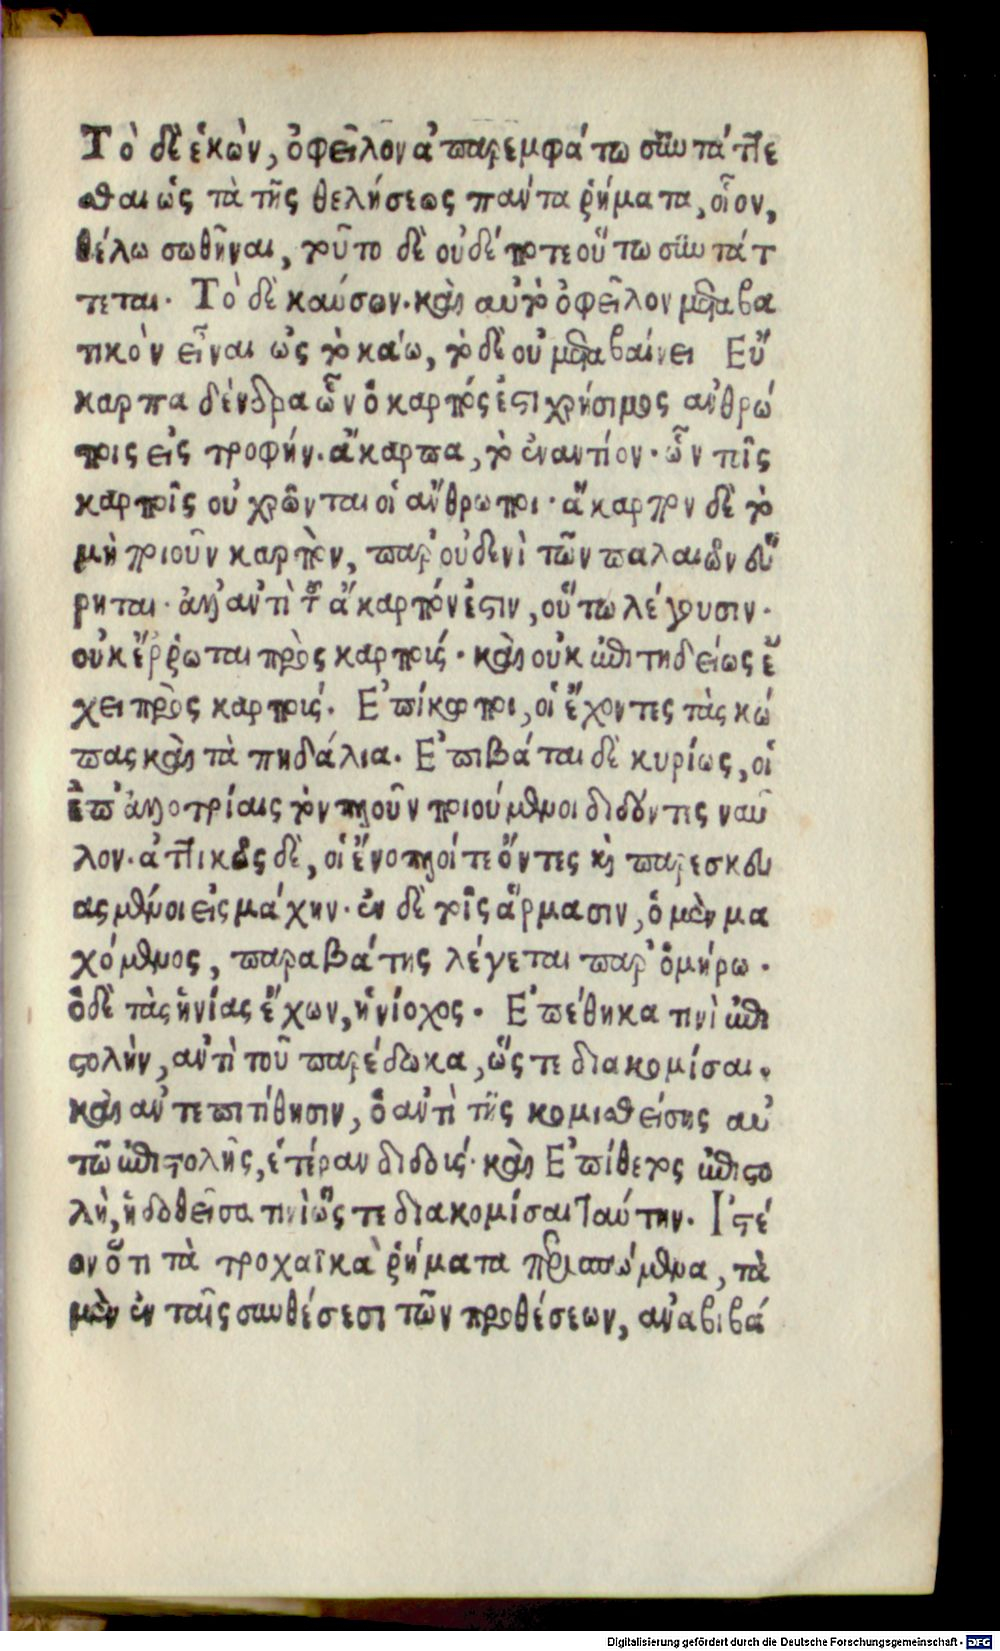 Τὸ δὲ ἑκὼν, ὀφεῖλον ἀπαρεμφάτω συντάττε
σθαι ὡς τὰ τῆς θελήσεως πάντα ῥήματα, οἷον,
θέλω σωθῆναι, τοῦτο δὲ οὐδέποτε οὕτω συντάτ
τεται. Τὸ δὲ καύσων. καὶ αὐτὸ ὀφεῖλον μεταβα
τικὸν εἶναι ὡς τὸ καίω, τὸ δὲ οὐ μεταβαίνει Εὔ
καρπα δένδρα ὧν ὁ καρπός ἐστι χρήσιμος ἀνθρώ
ποις εἰς τροφήν. ἄκαρπα, τὸ ἐναντίον. ὧν τοῖς
καρποῖς οὐ χρῶνται οἱ ἄνθρωποι. ἄκαρπον δὲ τὸ
μὴ ποιοῦν καρπὸν, παρ' οὐδενὶ τῶν παλαιῶν εὕ
ρηται. ἀλλ' ἀντὶ τοῦ ἄκαρπόν ἐστιν, οὕτω λέγουσιν.
οὐκ ἔρρωται πρὸς καρπούς. καὶ οὐκ ἐπιτηδείως ἔ
χει πρὸς καρπούς. Ἐπίκωποι, οἱ ἔχοντες τὰς κώ
πας καὶ τὰ πηδάλια. Ἐπιβάται δὲ κυρίως, οἱ
ἐπ' ἀλλοτρίαις τὸν πλοῦν ποιούμενοι διδόντες ναῦ
λον. ἀττικῶς δὲ, οἱ ἔνοπλοί τε ὄντες καὶ παρεσκευ
ασμένοι εἰς μάχην. ἐν δὲ τοῖς ἅρμασιν, ὁ μὲν μα
χόμενος, παραβάτης λέγεται παρ' ὁμήρω.
ὁ δὲ τὰς ἡνίας ἔχων, ἡνίοχος. Ἐπέθηκά τινι ἐπι
στολὴν, ἀντὶ τοῦ παρέδωκα, ὥστε διακομίσαι.
καὶ ἀντεπιτίθησιν, ὁ ἀντὶ τῆς κομισθείσης αὐ
τῶ ἐπιστολῆς, ἑτέραν διδούς. καὶ Ἐπίθετος ἐπιστο
λὴ, ἡ δοθεῖσά τινι ὥστε διακομίσαι ταύτην. Ἰστέ
ον ὅτι τὰ τροχαϊκὰ ῥήματα περισπώμενα, τὰ
μὲν ἐν ταῖς συνθέσεσι τῶν προθέσεων, ἀναβιβά
Digitalisierung gefördert durch die Deutsche Forschungsgemeinschaft - DFG